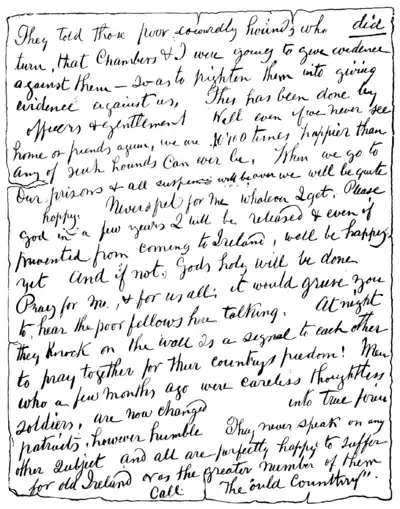 They told those poor cowardly hounds who did
turn, that Chambers & I were going to give evidence
against them — so as to frighten them into giving
evidence against us, This has been done by
officers & gentlement Well even if we never see
home or friends again, we are times happier than
any of such hounds can ever be. When we go to
Our prisons & all suspense will be over we will be quite
happy. Never fret for me whatever I get. Please
God in a few years I will be released & even if
prevented from coming to Ireland, we'll be happy
yet and if not, Gods holy will be done
Pray for me, & for us all; it would grieve you
to hear the poor fellows here talking. At night
they Knock on the wall as a signal to each other
to pray together for their countrys freedom! Men
who a few months ago were careless thoughtless
soldiers, are now changed into true
patriots, however humble They never speak on any
other subject and all are perfectly happy to suffer
for old Ireland or as the greater number of them
Call The "ould Counttry".